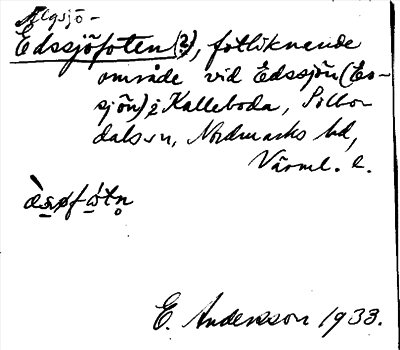 Älgsjö-
Edssjöfoten (?), fotliknande
område vid Edssjön (Es-
sjön) i Kalleboda, Sillbo-
dals sn, Nordmarks hd,
Värml. l.
E. Andersson 1933.